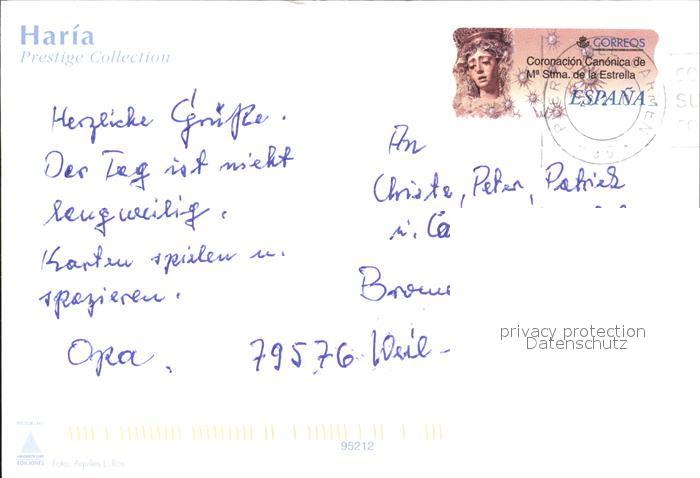 Haría
Prestige Collection
CORREOS
Coronación Canónica de
Mª Stma. de la Estrella
ESPAÑA
Herzliche Grüße.
Der Tag ist nicht
langweilig.
Karten spielen u.
spazieren.
Opa.
An
Christa, Peter, Patrick
u. Ca
79576 Weil-
privacy protection
Datenschutz
95212
EDICIONES
Foto: Aquiles L. Ros